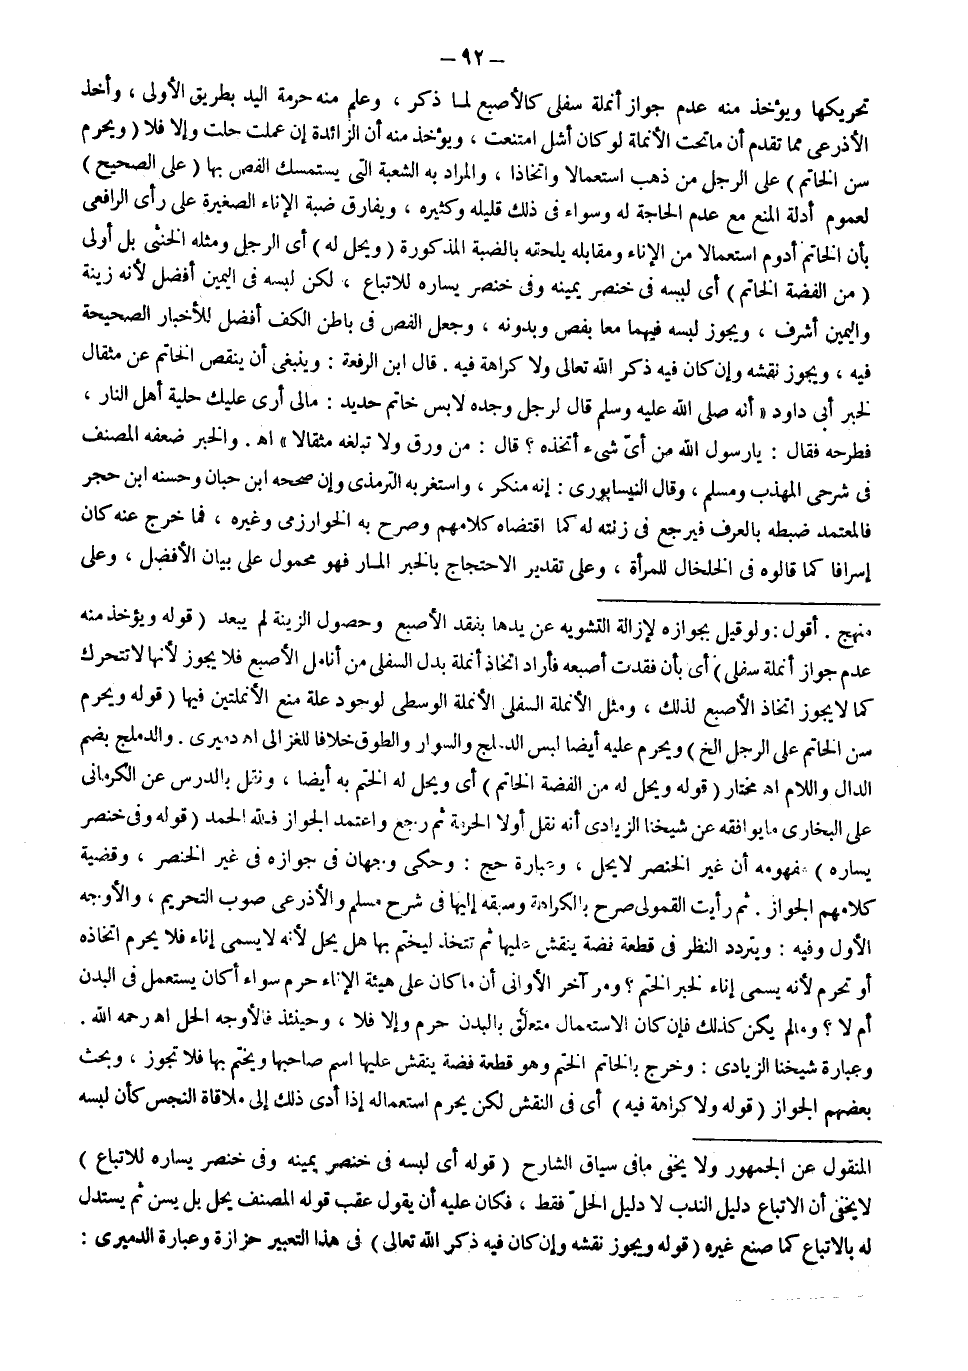 – ٩٢ –
تحريكها ويؤخذ منه عدم جواز أنملة سفلى كالأصبع لما ذكر ، وعلم منه حرمة اليد بطريق الأولى ، وأخذ
الأذرعى مما تقدم أن ماتحت الأنملة لو كان أشل امتنعت ، ويؤخذ منه أن الزائدة إن عملت حلت وإلا فلا ( ويحرم
سن الخاتم ) على الرجل من ذهب استعمالا واتخاذا ، والمراد به الشعبة التى يستمسك الفص بها ( على الصحيح )
لعموم أدلة المنع مع عدم الحاجة له وسواء فى ذلك قليله وكثيره ، ويفارق ضبة الإناء الصغيرة على رأى الرافعى
بأن الخاتم أدوم استعمالا من الإناء ومقابله يلحقه بالضبة المذكورة ( ويحل له ) أى الرجل ومثله الخنثى بل أولى
( من الفضة الخاتم ) أى لبسه فى خنصر يمينه وفى خنصر يساره للاتباع ، لكن لبسه فى اليمين أفضل لأنه زينة
واليمين أشرف ، ويجوز لبسه فيهما معا بفص وبدونه ، وجعل الفص فى باطن الكف أفضل للأخبار الصحيحة
فيه ، ويجوز نقشه وإن كان فيه ذكر الله تعالى ولا كراهة فيه . قال ابن الرفعة : وينبغى أن ينقص الخاتم عن مثقال
لخبر أبى داود « أنه صلى الله عليه وسلم قال لرجل وجده لابس خاتم حديد : مالى أرى عليك حلية أهل النار ،
فطرحه فقال : يارسول الله من أىّ شىء أتخذه ؟ قال : من ورق ولا تبلغه مثقالا » اه . والخبر ضعفه المصنف
فى شرحى المهذب ومسلم ، وقال النيسابورى : إنه منكر ، واستغربه الترمذى وإن صححه ابن حبان وحسنه ابن حجر
فالمعتمد ضبطه بالعرف فيرجع فى زنته له كما اقتضاه كلامهم وصرح به الخوارزمى وغيره ، فما خرج عنه كان
إسرافا كما قالوه فى الخلخال للمرأة ، وعلى تقدير الاحتجاج بالخبر المار فهو محمول على بيان الأفضل ، وعلى
منهج . أقول : ولو قيل بجوازه لإزالة التشويه عن يدها بفقد الأصبع وحصول الزينة لم يبعد ( قوله ويؤخذ منه
عدم جواز أنملة سفلى ) أى بأن فقدت أصبعه فأراد اتخاذ أنملة بدل السفلى من أنامل الأصبع فلا يجوز لأنها لا تتحرك
كما لا يجوز اتخاذ الأصبع لذلك ، ومثل الأنملة السفلى الأنملة الوسطى لوجود علة منع الأنملتين فيها ( قوله ويحرم
سن الخاتم على الرجل الخ ) ويحرم عليه أيضا لبس الدملج والسوار والطوق خلافا للغزالى اه دميرى . والدملج بضم
الدال واللام اه مختار ( قوله ويحل له من الفضة الخاتم ) أى ويحل له الختم به أيضا ، ونقل بالدرس عن الكرمانى
على البخارى مايوافقه عن شيخنا الزيادى أنه نقل أولا الحرمة ثم رجع واعتمد الجواز فلله الحمد ( قوله وفى خنصر
يساره ) مفهومه أن غير الخنصر لايحل ، وعبارة حج : وحكى وجهان فى جوازه فى غير الخنصر ، وقضية
كلامهم الجواز . ثم رأيت القمولى صرح بالكراهة وسبقه إليها فى شرح مسلم والأذرعى صوب التحريم ، والأوجه
الأول وفيه : ويتردد النظر فى قطعة فضة ينقش عليها ثم تتخذ ليختم بها هل يحل لأنه لايسمى إناء فلا يحرم اتخاذه
أو تحرم لأنه يسمى إناء لخبر الختم ؟ ومر آخر الأوانى أن ماكان على هيئة الإناء حرم سواء أكان يستعمل فى البدن
أم لا ؟ ومالم يكن كذلك فإن كان الاستعمال متعلق بالبدن حرم وإلا فلا ، وحينئذ فالأوجه الحل اه رحمه الله .
وعبارة شيخنا الزيادى : وخرج بالخاتم الختم وهو قطعة فضة ينقش عليها اسم صاحبها ويختم بها فلا تجوز ، وبحث
بعضهم الجواز ( قوله ولا كراهة فيه ) أى فى النقش لكن يحرم استعماله إذا أدى ذلك إلى ملاقاة النجس كأن لبسه
المنقول عن الجمهور ولا يخفى مافى سياق الشارح ( قوله أى لبسه فى خنصر يمينه وفى خنصر يساره للاتباع )
لايخفى أن الاتباع دليل الندب لا دليل الحلّ فقط ، فكان عليه أن يقول عقب قوله المصنف يحل بل يسن ثم يستدل
له بالاتباع كما صنع غيره ( قوله ويجوز نقشه وإن كان فيه ذكر الله تعالى ) فى هذا التعبير حزازة وعبارة الدميرى :